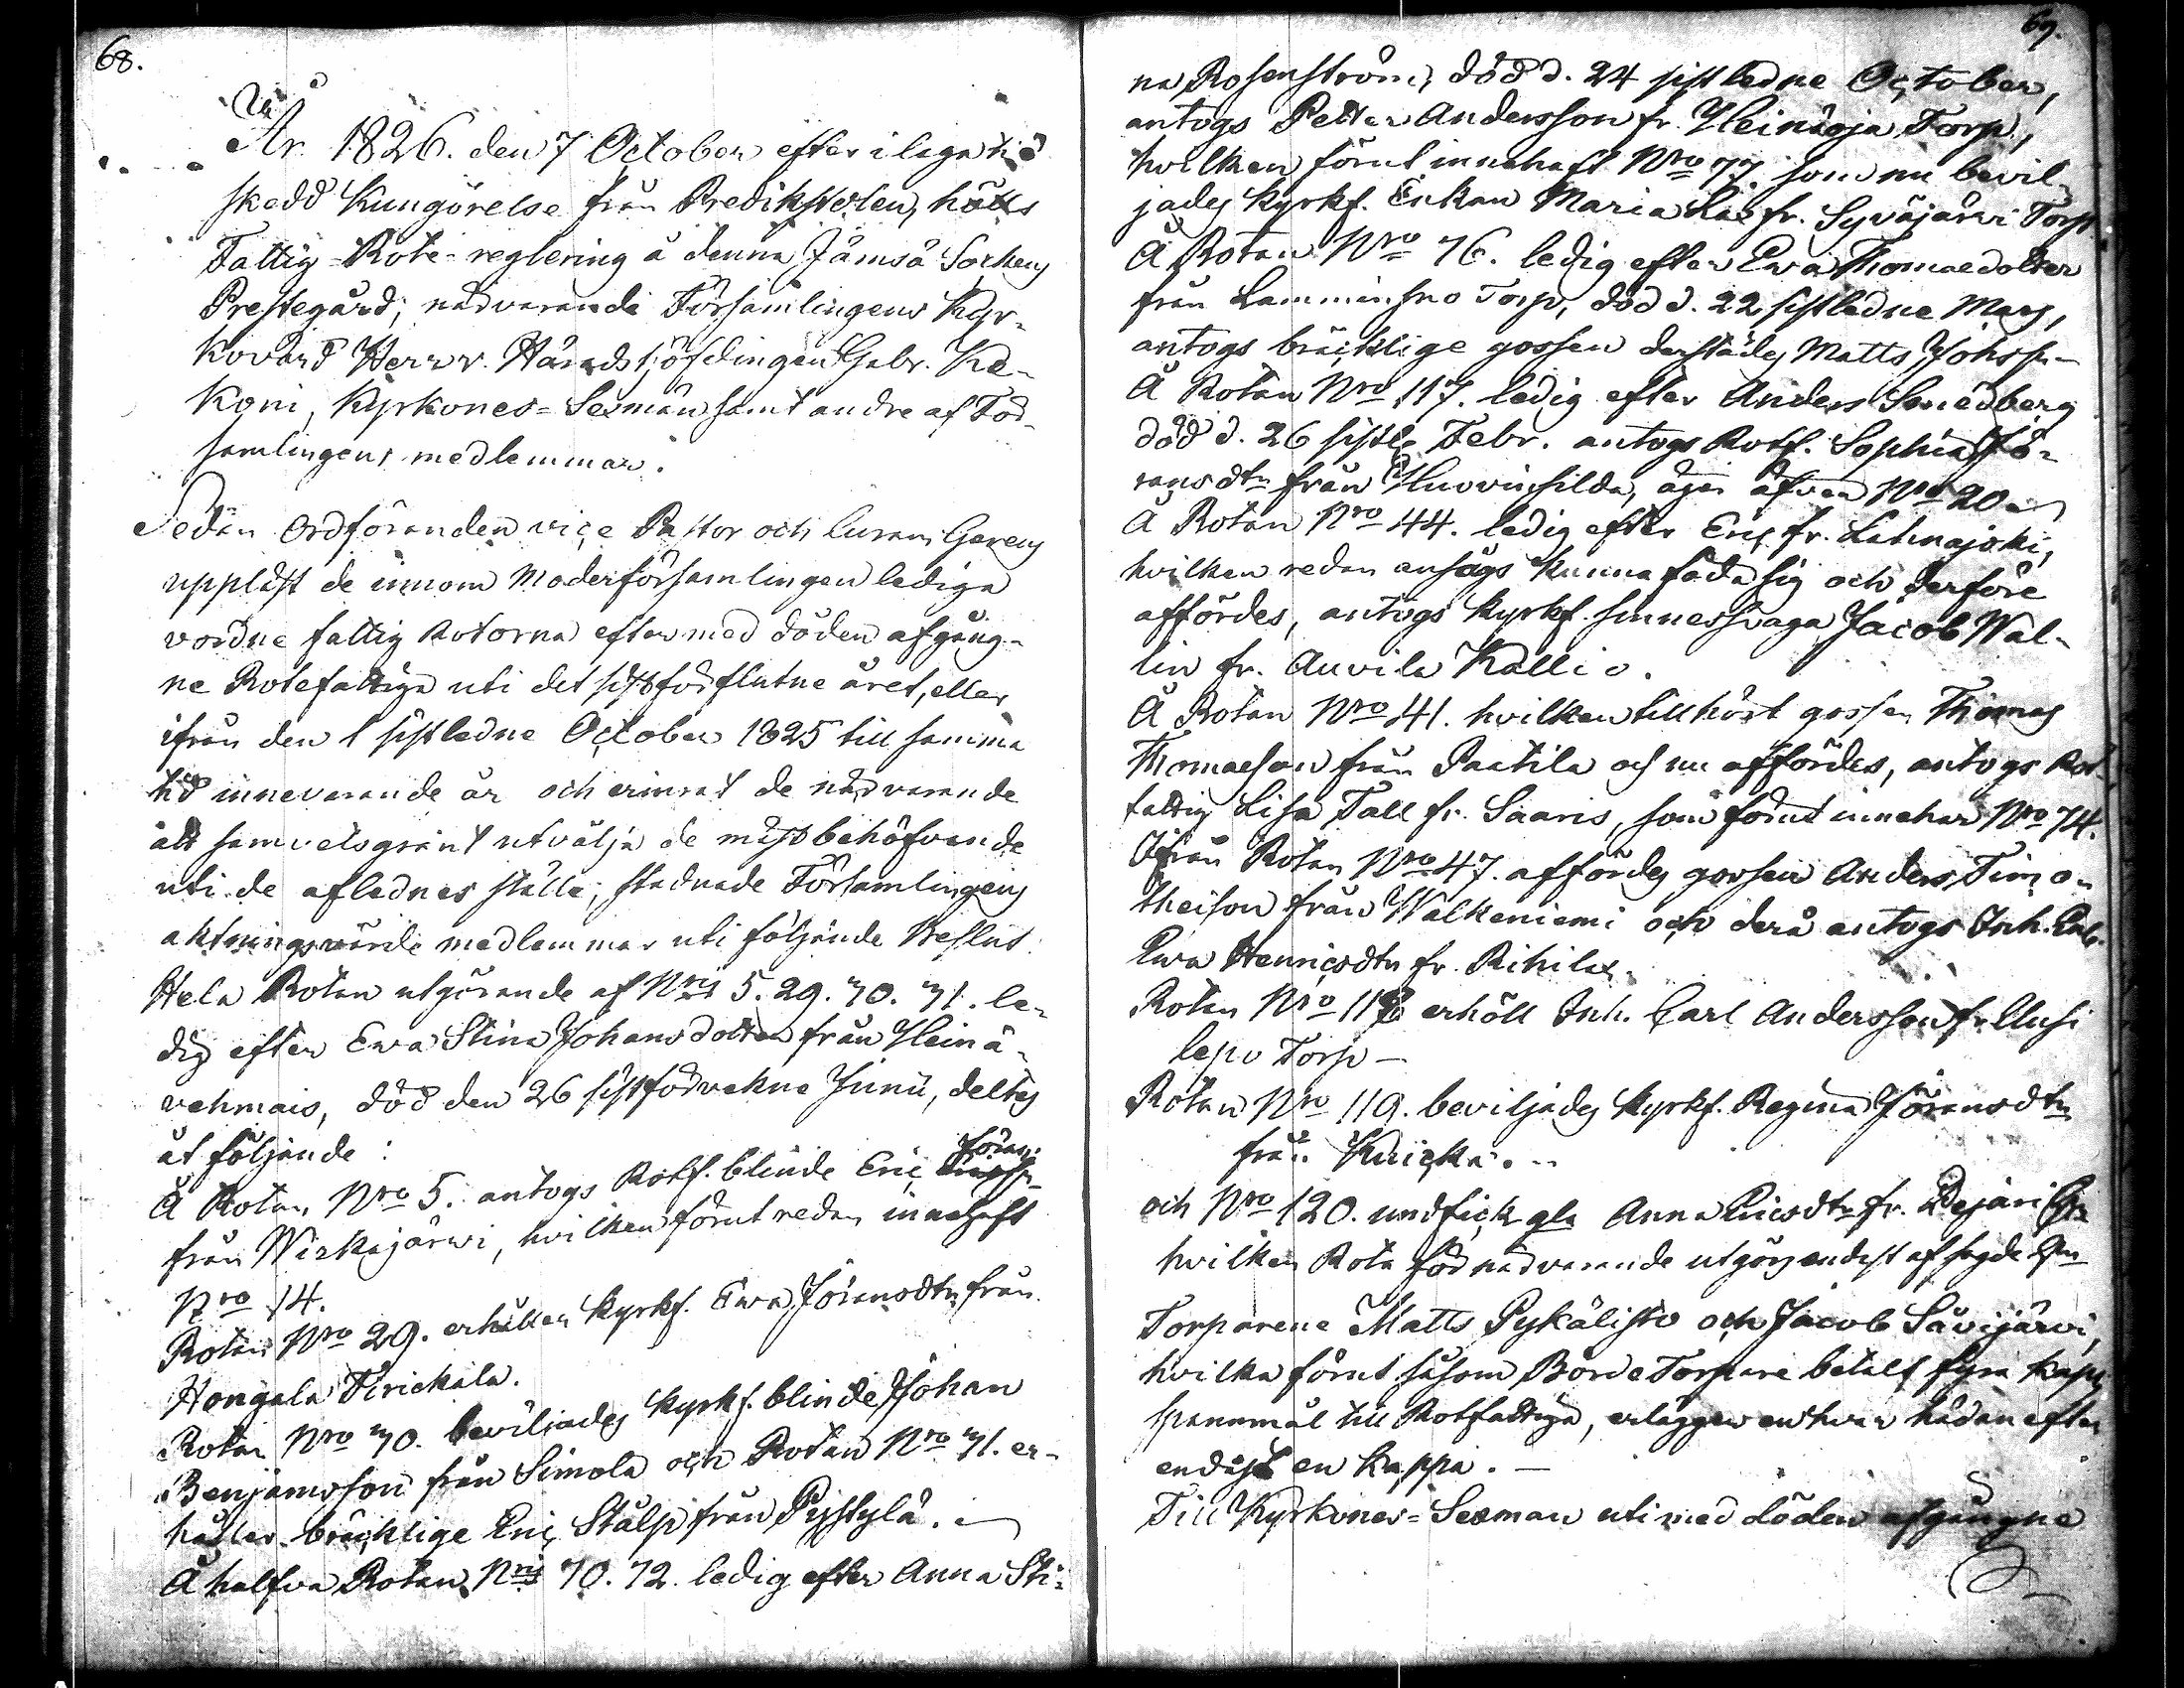 68.
År 1826. den 7 October efter i laga tid
skedd Kungörelse från Predikstolen, hölts
Fattig-Rote-reglering å denna Jämsä Sockens
Prestegård; närvarande Församlingens Kyr-
kovärd Herr v. Häradshöfdingen Gabr. Ke-
koni, Kyrkones-Sexmän samt andre af För-
samlingens medlemmar.
Sedan Ordföranden vice Pastor och
uppläst de innom Moderförsamlingen lediga
vordne fattig Rotorna efter med döden afgång-
ne Rotefattiga uti det sistförflutne året, eller
ifrån den 1 sistledne October 1825 till samma
tid innevarande år och erinrat de närvarande
att samvetsgrant utvälja de mest behöfvande
uti de aflednes ställe; stadnade Församlingens
aktningsvärde medlemmar uti följande Beslut:
Hela Rotan utgörande af Nris 5. 29. 70. 71. le-
dig efter Ewa Stina Johansdotter från Heinä-
vehmais, död den 26 sistförvekne Junii, deltes
åt följande:
Å Rotan Nro 5. antogs Rotf. blinde Eric Jörans.
från Wirkajärwi, hvilken förut redan innehaft
Nro 14.
Rotan Nro 29. erhåller Kyrkf. Ewa Jöransdtr från
Hongala Tirickala.
Rotan Nro 70. beviljades Kyrkf. blinde Johan
Benjamsson från Simola och Rotan Nro 71. er-
håller bräcklige Eric Stålp från Pystylä.
Å halfva Rotan Nris 70. 72. ledig efter Anna Sti-
69.
na Rosenström, död d. 24 sistledne October,
antogs Petter Andersson fr. Heinäoja Torp,
hvilken förut innehaft Nro 77. som nu bevil-
jades Kyrkf. Enkan Maria Lax fr. Syväjärvi Torp
Å Rotan Nro 76. ledig efter Ewa Thomaedotter
från Torp, död d. 22 sistledne Mars,
antogs bräcklige gossen derstädes Matts Johsson
Å Rotan Nro 117. ledig efter Anders Smedberg
död d. 26 sistl. Febr. antogs Rotf. Sophia Jö-
ransdtr från äger äfven Nro 20
Å Rotan Nro 44. ledig efter Eric fr. Lahnajoki,
hvilken redan ansågs kunna föda sig och derföre
affördes, antogs Kyrkf. sinnessvaga Jacob Wal-
lin fr. Auvila Kallio.
Å Rotan Nro 41. hvilken tillhört gossen Thomas
Thomaeson från Paatila och nu affördes, antogs Rot-
fattig Lisa Tall fr. Saaris, som förut innehar Nro 74.
Ifrån Rotan Nro 47. affördes gossen Anders Timo-
theison från Walkeniemi och derå antogs Inh. Enk.
Ewa Henricsdtr fr. Rihilax.
Rotan Nro 118 erhöll Inh. Carl Andersson fr. Uusi
lepo Torp —
Rotan Nro 119. beviljades Kyrkf. Regina Jöransdtr
från
och Nro 120. undfick gla Anna Ericsdtr fr.
hvilken Rota för närvarande utgöres endast af sagde
Torparene Matts Pykälistö och Jacob Savijärvi,
hvilka förut såsom Börde Torpare betalt fyra Kapp.
spannmål till Rotfattiga, erlägger enhvar hädanefter
endast en kappa. —
Till Kyrkones-Sexman uti med döden afgångne